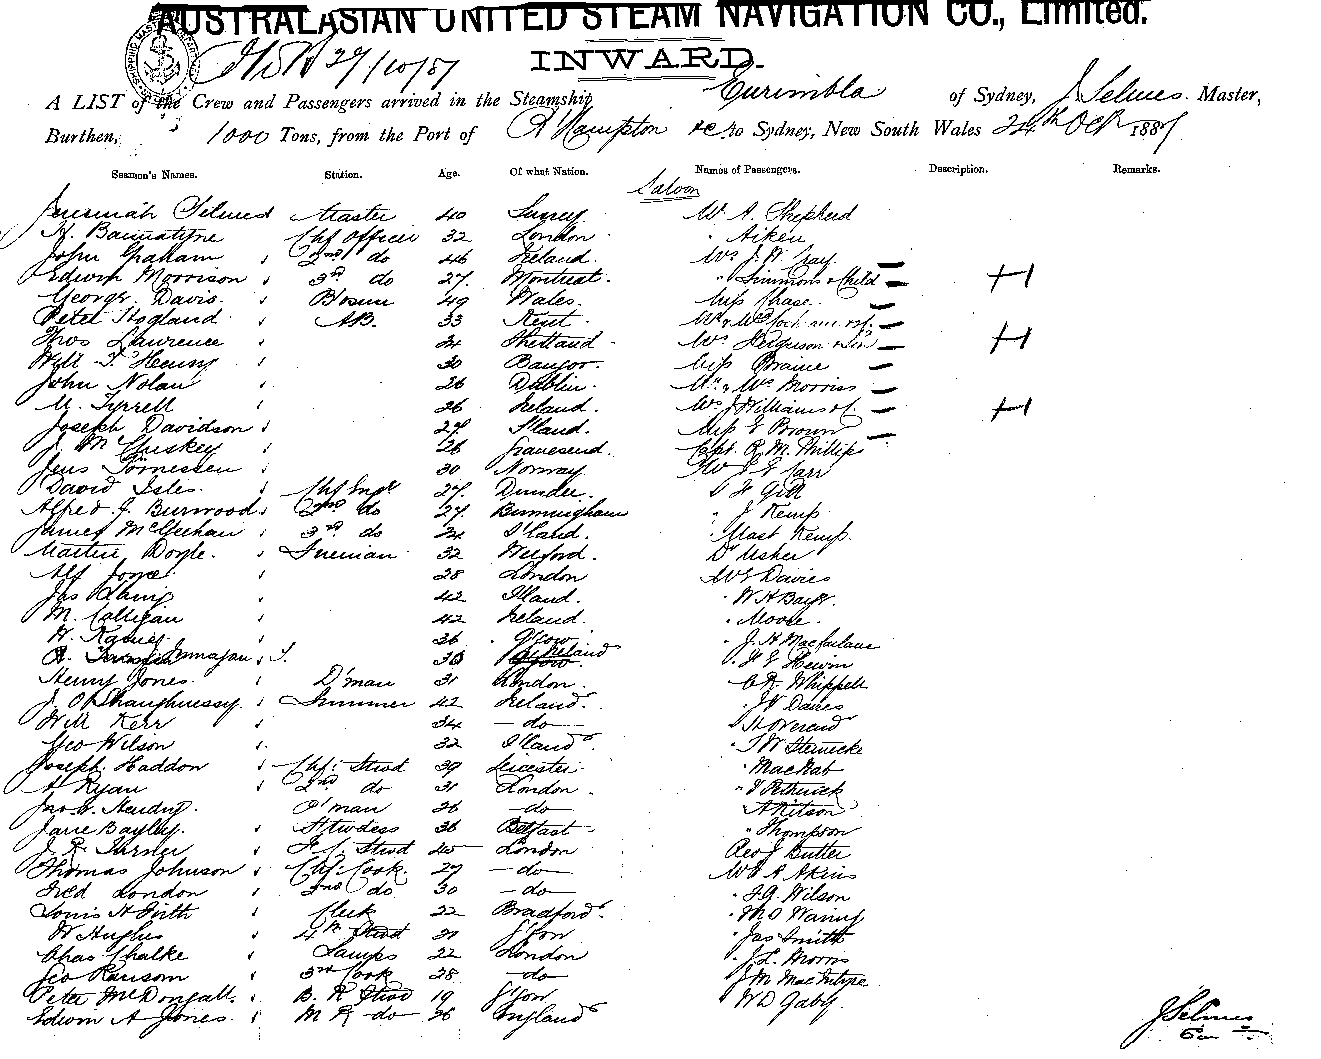 AUSTRALASIAN UNITED STEAM NAVIGATION CO., Limited.
27/10/87
INWARD.
A LIST of the Crew and Passengers arrived in the Steamship Eurimbla of Sydney, J Selmes Master,
Burthen, 1000 Tons, from the Port of R'Hampton &c to Sydney, New South Wales 24th Oct 1887
Seamen's Names. Station. Age. Of what Nation. Names of Passengers. Description. Remarks.
Saloon
Jeremiah Selmes Master 40 Surrey Mr A. Shepherd
H. Bannatyne Chf Officer 32 London " Aiken
John Graham 2nd do 46 Ireland Mrs J. W. Gray
Edwin Morrison 3rd do 27 Montreal " Simmons & Child
George Davis Bosun 49 Wales Miss Chase
Peter Hogland AB. 33 Kent Mr & Mrs
Thos Lawrence 24 Shetland Mrs Ferguson &
Will T. Henry 30 Bangor Miss
John Nolan 26 Dublin Mr & Mrs Morriss
M. Tyrrell 26 Ireland Mrs J Williams &
Joseph Davidson 27 I'land Miss E Brown
J. McCluskey 26 Gravesend Capt. R. M. Phillips
Jens Tornessen 30 Norway J. E Carr
David Isles Chf Engr 27 Dundee " Gill
Alfred J. Burwood 2nd do 27 Birmingham " J Kemp
James McGeehan 3rd do 24 I'land Mast Kemp
Martin Doyle Fireman 32 Wexford Dr Usher
Alf Jones 28 London Mr E Davies
Jas 42 I'land " W H
M. Calligan 42 Ireland " Moore
W. 36 G'gow " J. H Macfarlane
R. Finnagan J. 36 Ireland " F E
Henry Jones D'man 31 London C R. Whippell
J. O'Shaughnessy Trimmer 42 Ireland " J W Davies
Will Kerr 34 — do — " H Overend
Geo Wilson 32 I'land " J W Steinecke
Joseph Haddon Chf Stwd 39 Leicester " MacNab
A Ryan 2nd do 31 London " J Pethrick
Jno W. Harding P'man 26 — do — " A Kitson
Jane Bayley Stwdess 36 Belfast " Thompson
J. R. Turner F.C. Stwd 45 London Rev J Butter
Thomas Johnson Chf Cook 27 — do — Mr A Akins
Fred London 2nd do 30 — do — " J. G. Wilson
Louis H Firth Clerk 22 Bradford " M O Waring
W Hughes 4th Stwd 21 G'gow " Jas Smith
Chas Chalke Lamps 22 London " J. L. Morris
Geo Ransom 3rd Cook 28 — do — " J M MacIntyre
Peter McDongall B. R Stwd 19 G'gow " W D Gaby
Edwin A Jones M R do 26 England
J Selmes